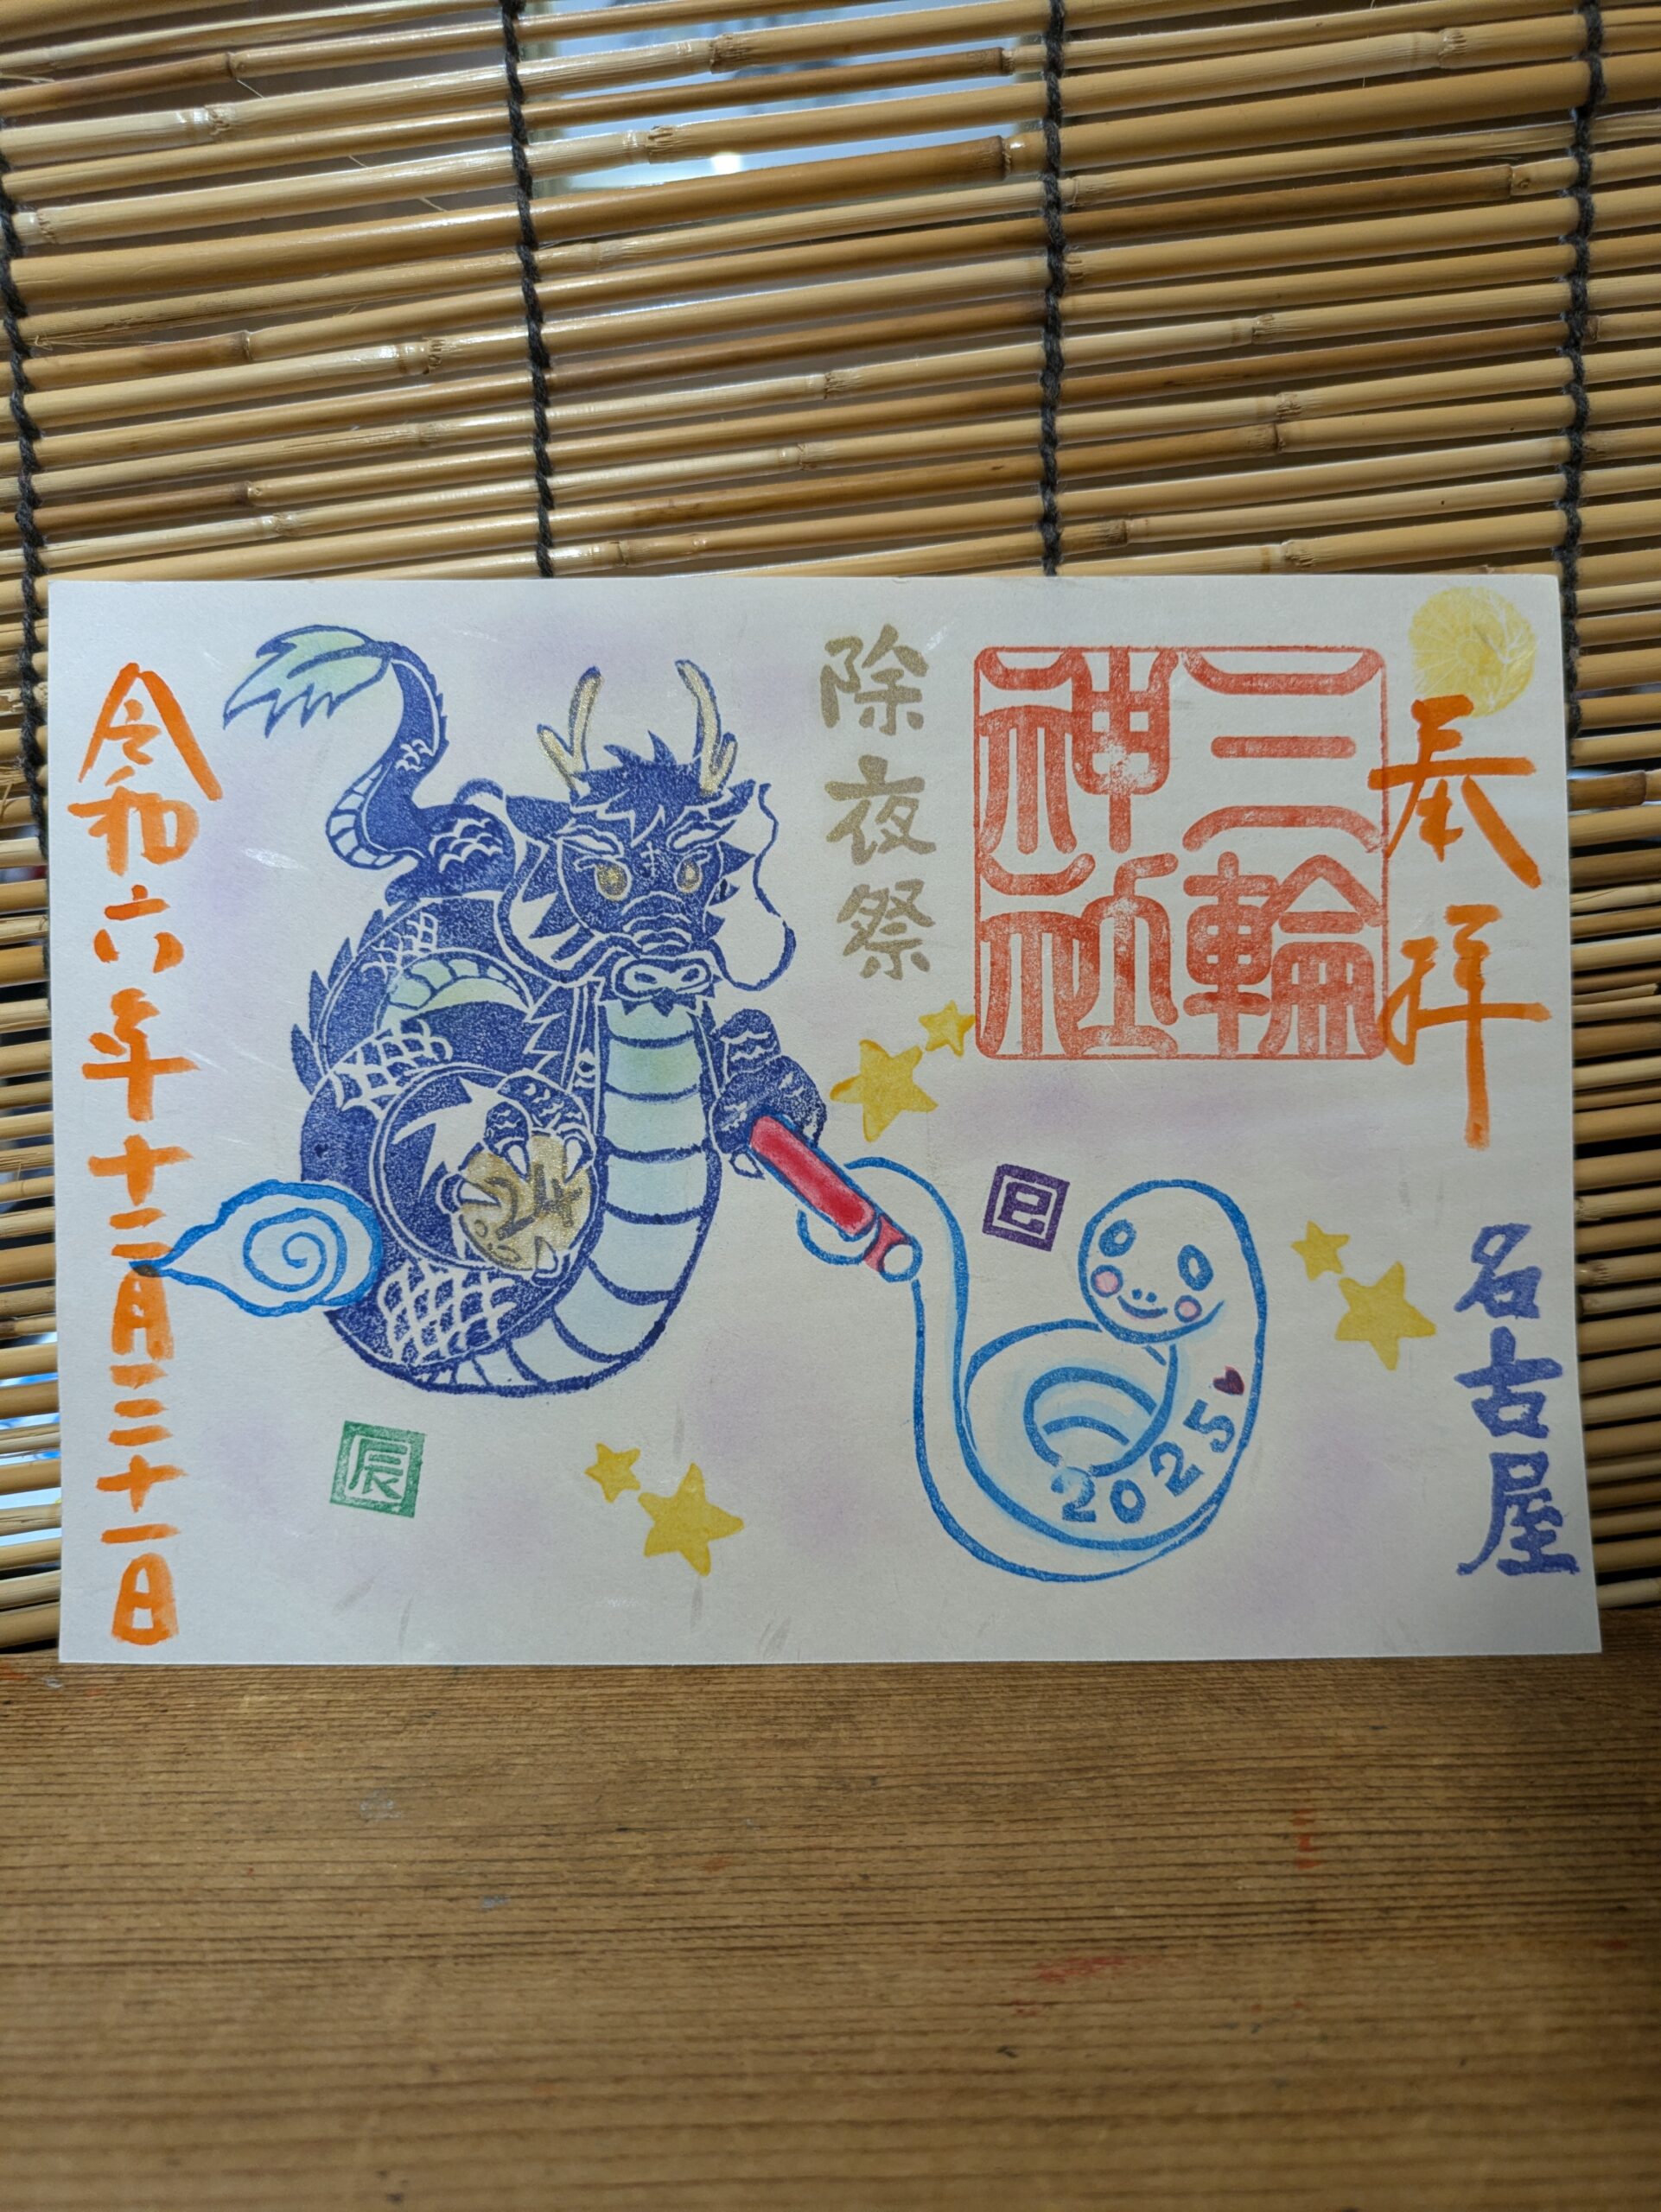 奉拝
三輪
神社
名古屋
除夜祭
巳
2025
24
辰
令和六年十二月三十一日